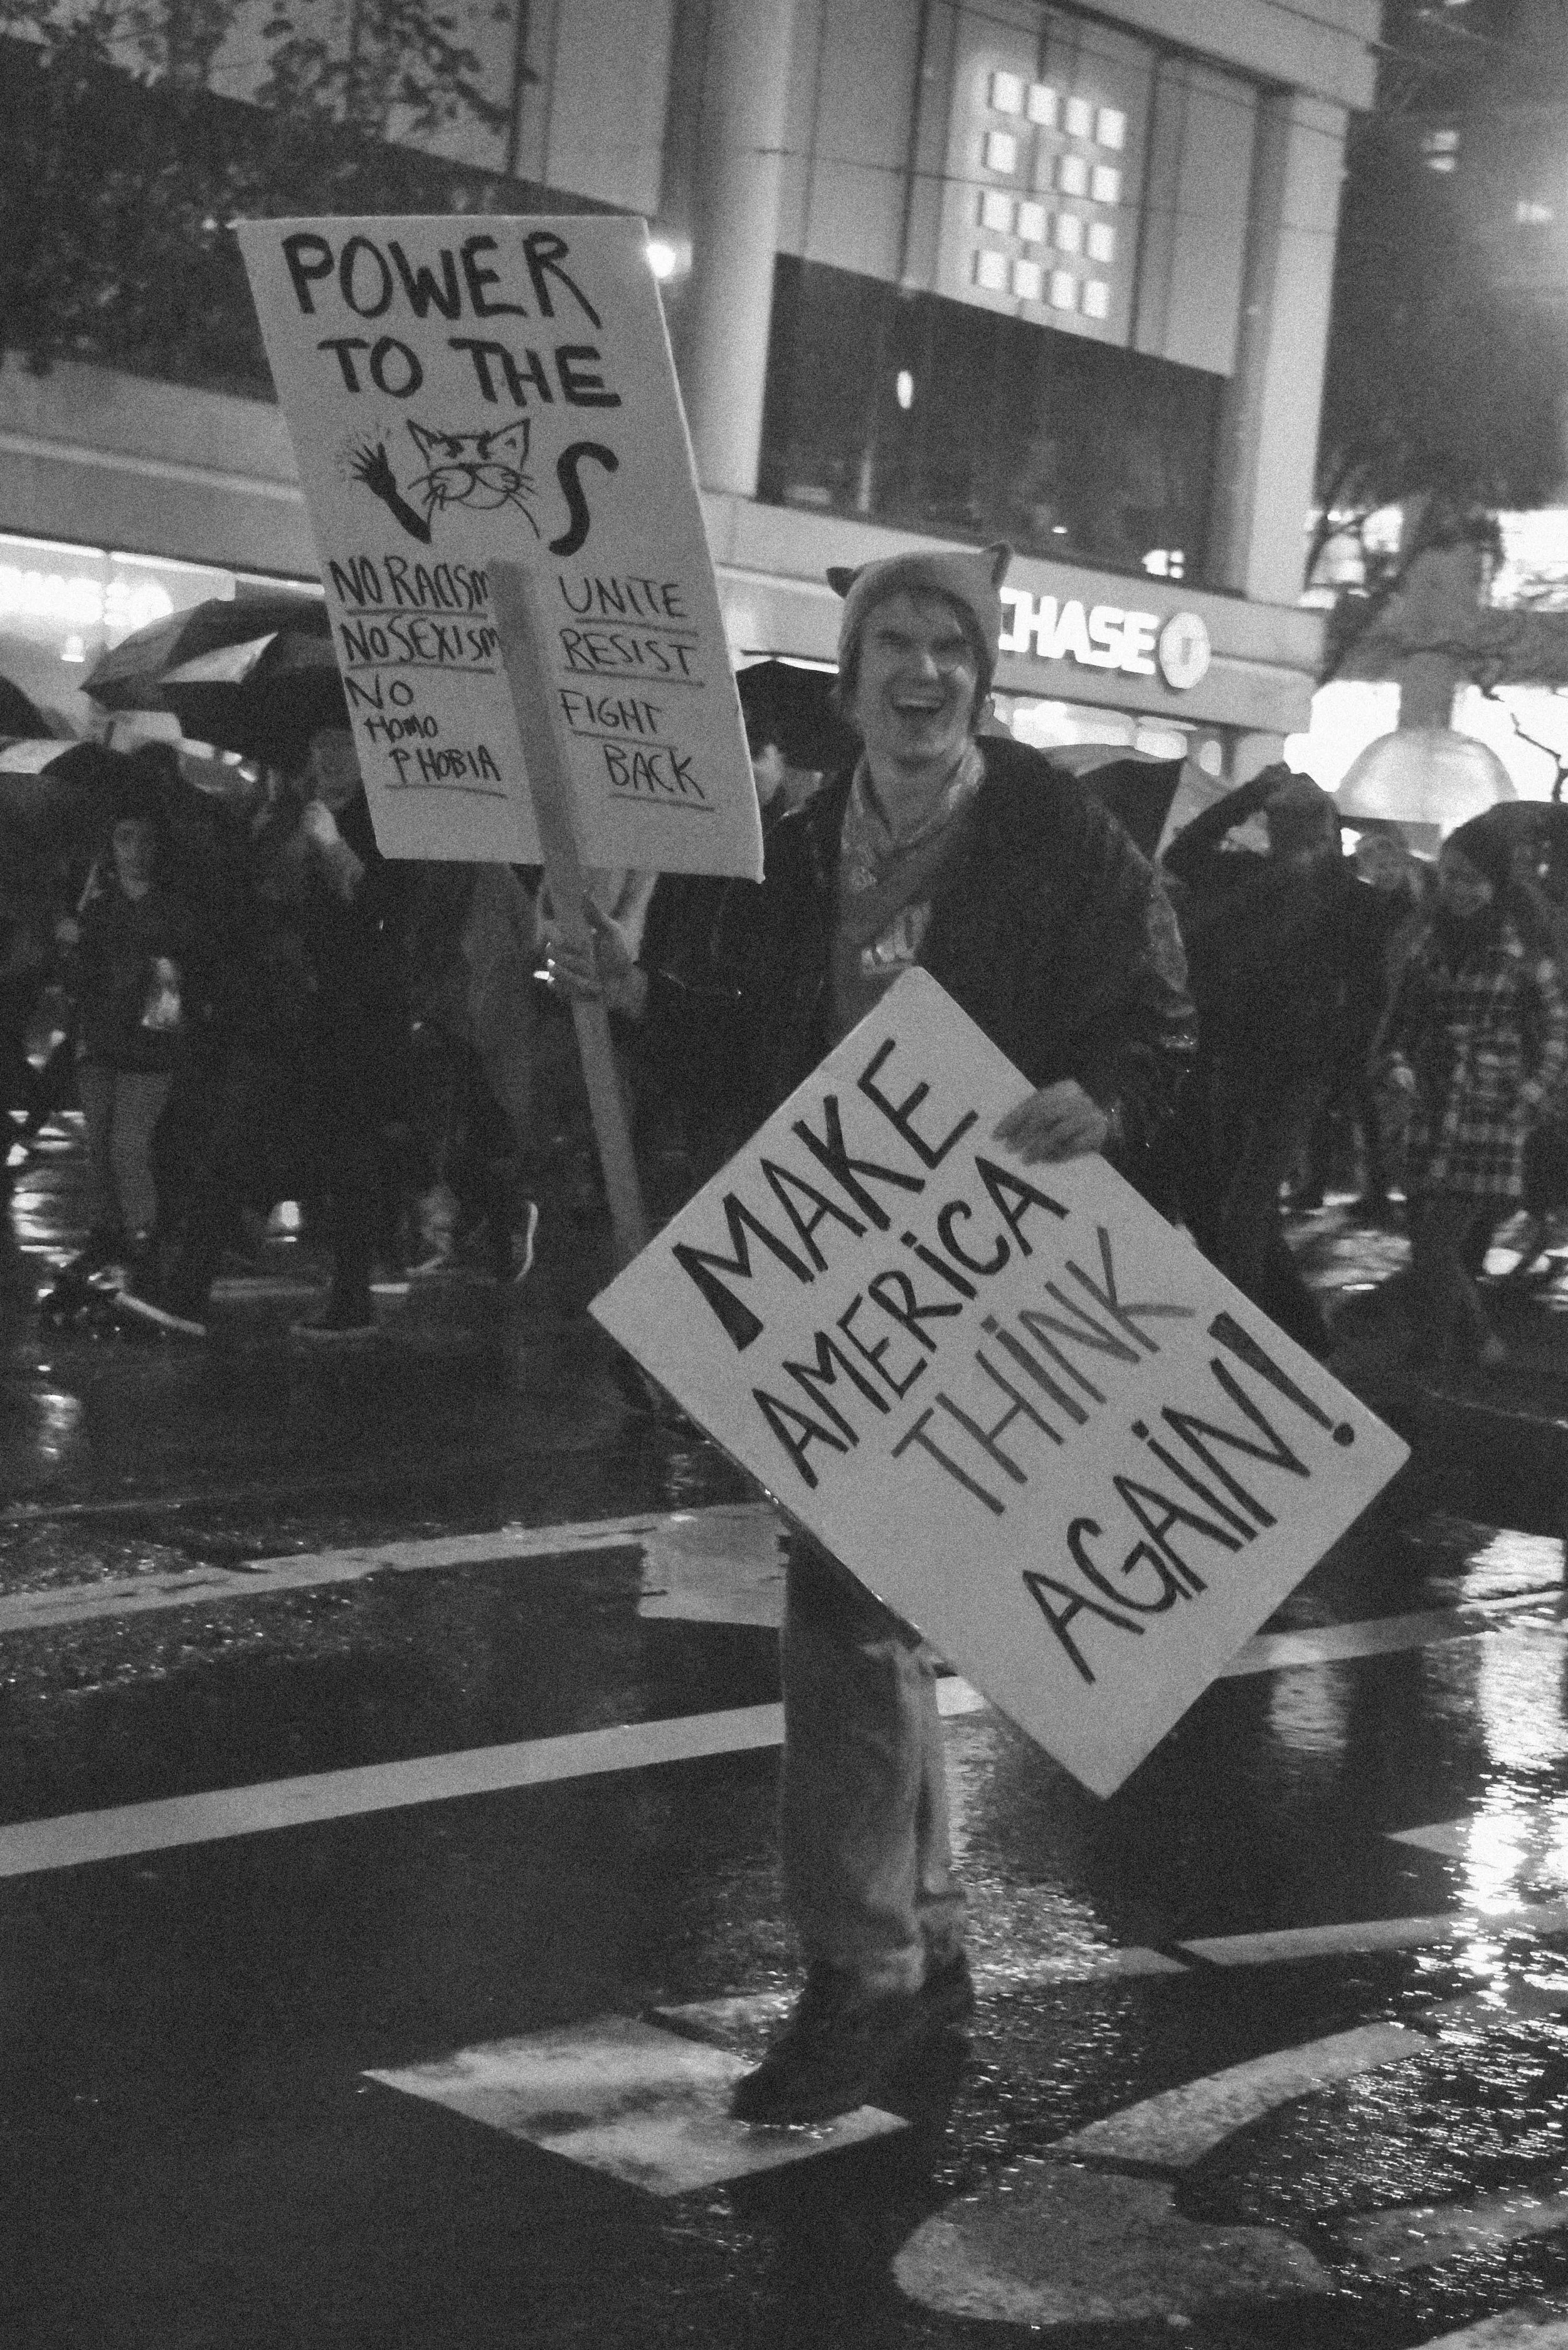 POWER
TO THE
S
NO RACISM
NO SEXISM
NO
HOMO
PHOBIA
UNITE
RESIST
FIGHT
BACK
CHASE
MAKE
AMERiCA
THiNK
AGAiN!